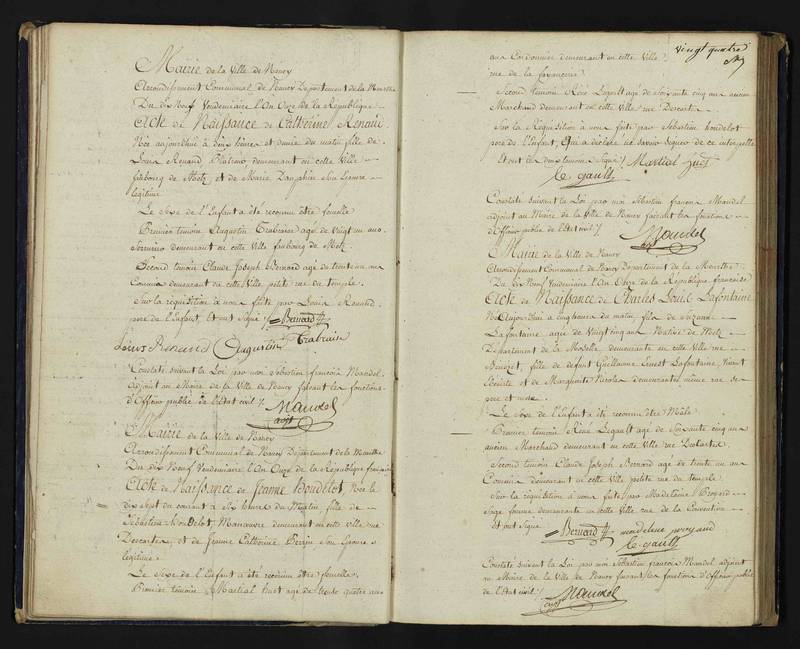 Mairie de la Ville de Nancy
Arrondissement Communal de Nancy Departement de la Meurthe
Du dix Neuf Vendemiaire l'An Onze de la République
Acte de Naissance de Catherine Renard
Née aujourd'hui à dix heures et demie du matin fille de
Louis Renard demeurant en cette Ville
faubourg de Metz, et de Marie Dauphin son Epouse
légitime
Le Sexe de l'Enfant a été reconnu être femelle
Premier témoin Augustin Trabraise agé de vingt un ans
Serrurier demeurant en cette Ville faubourg de Metz
Second témoin Claude Joseph Bernard agé de trente un ans
Commis demeurant en cette Ville petite rue du temple
Sur la réquisition à nous faite par Louis Renard
pere de l'Enfant, Et ont Signé /. Bernard
Louis Renard Augustin Trabraise
Constaté suivant la Loi par moi Sébastien françois Mandel
adjoint au Maire de la Ville de Nancy faisant les fonctions
d'Officier public de l'état civil /. Mandel
adjt
Mairie de la Ville de Nancy
Arrondissement Communal de Nancy Département de la Meurthe
Du dix Neuf Vendemiaire l'An Onze de la République française
Acte de Naissance de Jeanne Houdelot, Née le
dix sept du courant à six heures du Matin fille de
Sébastien Houdelot, Manoeuvre demeurant en cette ville rue
Descartes, et de Jeanne Catherine Perrin son Epouse
légitime
Le Sexe de l'Enfant a été reconnu être femelle
Premier témoin Martial huet agé de trente quatre
vingt quatre
ans Cordonnier demeurant en cette Ville
rue de la fayancerie
Second témoin René Legault agé de Soixante cinq ans ancien
Marchand demeurant en cette Ville rue Descartes
Sur la Réquisition à nous faite par Sébastien houdelot
pere de l'Enfant, Qui a déclaré ne savoir Signer de ce interpellé
Et ont les deux témoins Signé /. Martial huet
le gault
Constaté suivant la Loi par moi Sébastien françois Mandel
adjoint au Maire de la Ville de Nancy faisant les fonctions
d'Officier public de l'état civil /.
Mandel
adjt
Mairie de la Ville de Nancy
Arrondissement Communal de Nancy Departement de la Meurthe
Du dix Neuf Vendemiaire l'An Onze de la République française
Acte de Naissance de Charles Louis Lafontaine
Né Aujourd'hui à cinq heures du matin fils de Suzanne
Lafontaine agée de Vingt cinq ans Native de Metz
Département de la Moselle demeurante en cette Ville rue
fille de defunt Guillaume Ernest Lafontaine vivant
et de Marguerite Nicolas demeurante même rue ses
pere et mere
Le Sexe de l'Enfant a été reconnu être Mâle
Premier témoin René Legault agé de Soixante cinq ans
ancien Marchand demeurant en cette Ville rue Descartes
Second témoin Claude Joseph Bernard agé de trente un ans
Commis demeurant en cette Ville petite rue du temple
Sur la réquisition à nous faite par Madelaine
Sage femme demeurante en cette Ville rue de la Convention
Et ont Signé
Bernard madeleine
le gault
Constaté suivant la Loi par moi Sébastien françois Mandel adjoint
au Maire de la Ville de Nancy faisant les fonctions d'Officier public
de l'état civil /.
Mandel
adjt